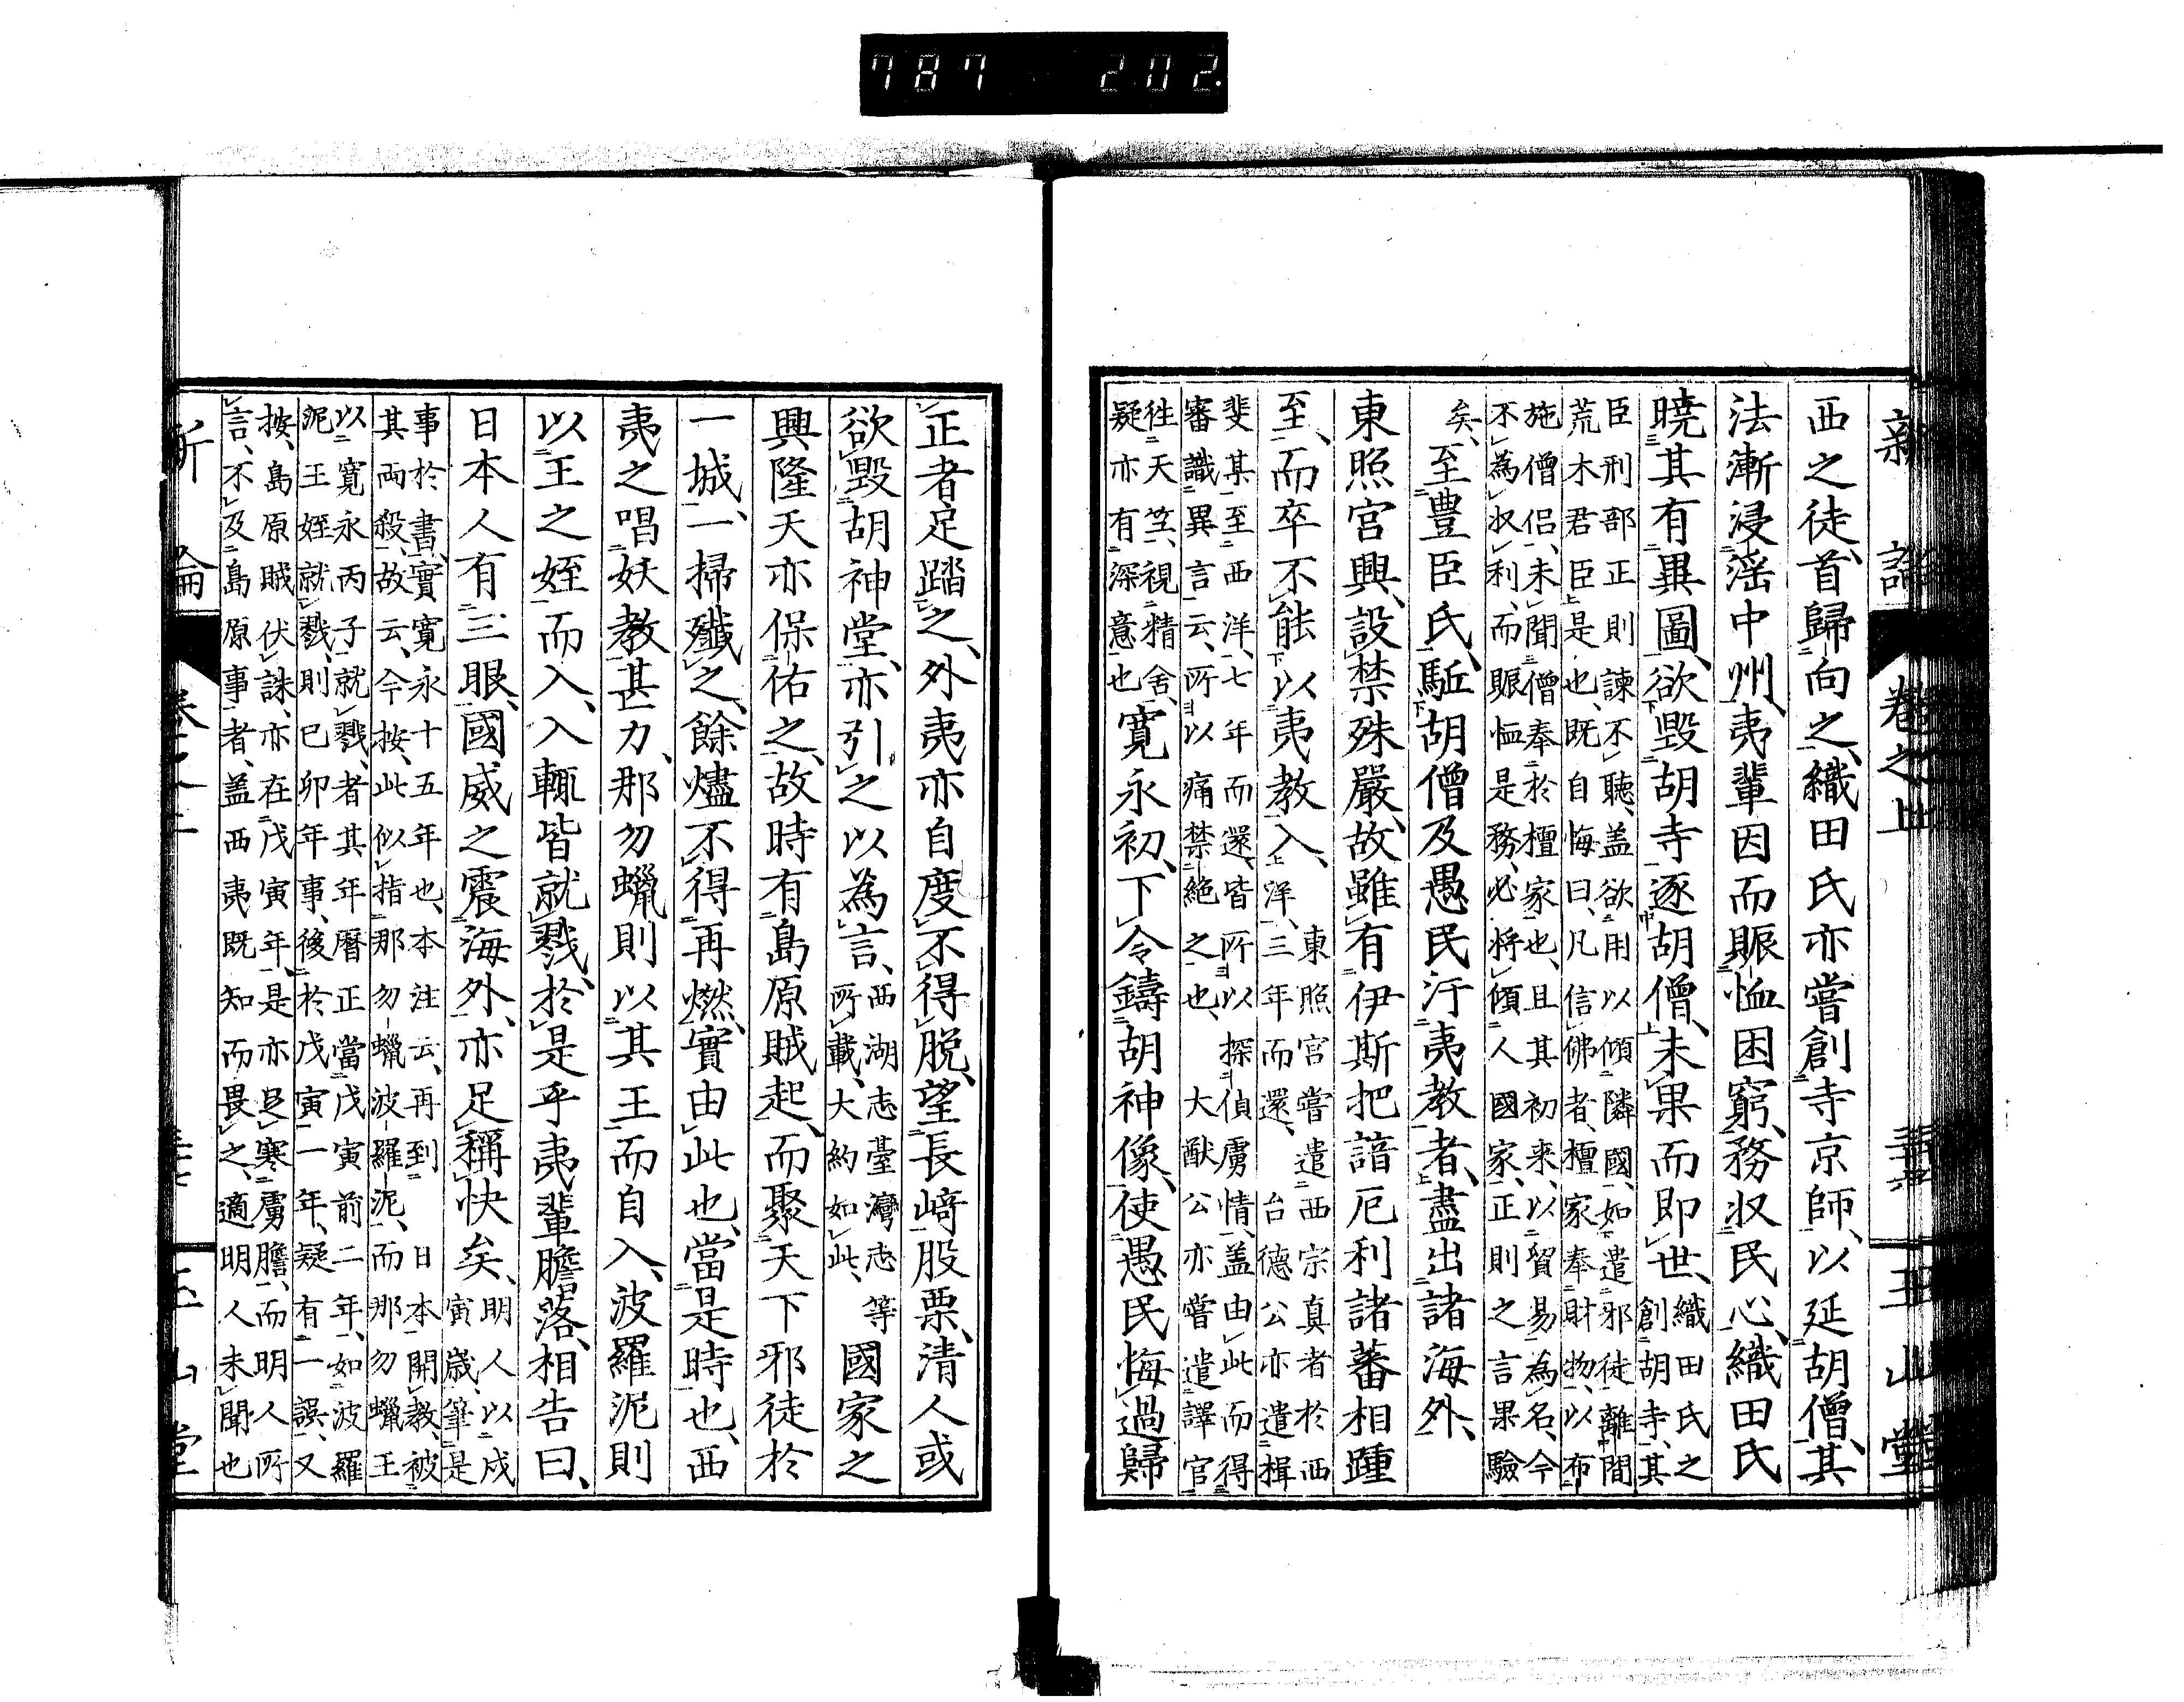 787 202
新論 卷之上 玉山堂
西之徒、首歸向之、織田氏亦嘗創寺京師、以延胡僧、其
法漸浸淫中州、夷輩因而賑恤困窮、務収民心、織田氏
曉其有異圖、欲毀胡寺逐胡僧、未果而即世、
織田氏之創胡寺、其
臣刑部正則諫不聽、盖欲用以傾隣國、如遣邪徒離間
荒木君臣是也、既自悔曰、凡信佛者、檀家奉財物、以布
施僧侶、未聞僧奉於檀家也、且其初来、以貿易為名、今
不為収利、而賑恤是務、必將傾人國家、正則之言果驗
矣、
至豊臣氏、駈胡僧及愚民汙夷教者、盡出諸海外、
東照宮興、設禁殊嚴、故雖有伊斯把諳厄利諸蕃相踵
至、而卒不能以夷教入、
東照宮嘗遣西宗真者於西
洋、三年而還、台德公亦遣揖
斐某至西洋、七年而還、皆所以探偵虜情、盖由此而得
審識異言云、所以痛禁絶之也、大猷公亦嘗遣譯官
徃天竺、視精舍、
疑亦有深意也
寛永初、下令鑄胡神像、使愚民悔過歸
正者足踏之、外夷亦自度不得脱、望長﨑股栗、清人或
欲毀胡神堂、亦引之以為言、
西湖志臺灣志等
所載、大約如此、
國家之
興隆天亦保佑之、故時有島原賊起、而聚天下邪徒於
一城、一掃殲之、餘燼不得再燃、實由此也、當是時也、西
夷之唱妖教甚力、那勿蠟則以其王而自入、波羅泥則
以王之姪而入、入輒皆就戮、於是乎夷輩膽落、相告曰、
日本人有三眼、國威之震海外、亦足稱快矣、
明人以戍
寅歳、筆是
事於書、實寛永十五年也、本注云、再到日本開教、被
其両殺、故云、今按、此似指那勿蠟波羅泥、而那勿蠟王
以寛永丙子就戮者、其年曆正當戊寅前二年、如波羅
泥王姪就戮、則已卯年事、後於戊寅一年、疑有一誤、又
按、島原賊伏誅、亦在戊寅年、是亦足寒虜膽、而明人所
言、不及島原事者、盖西夷既知而畏之、適明人未聞也